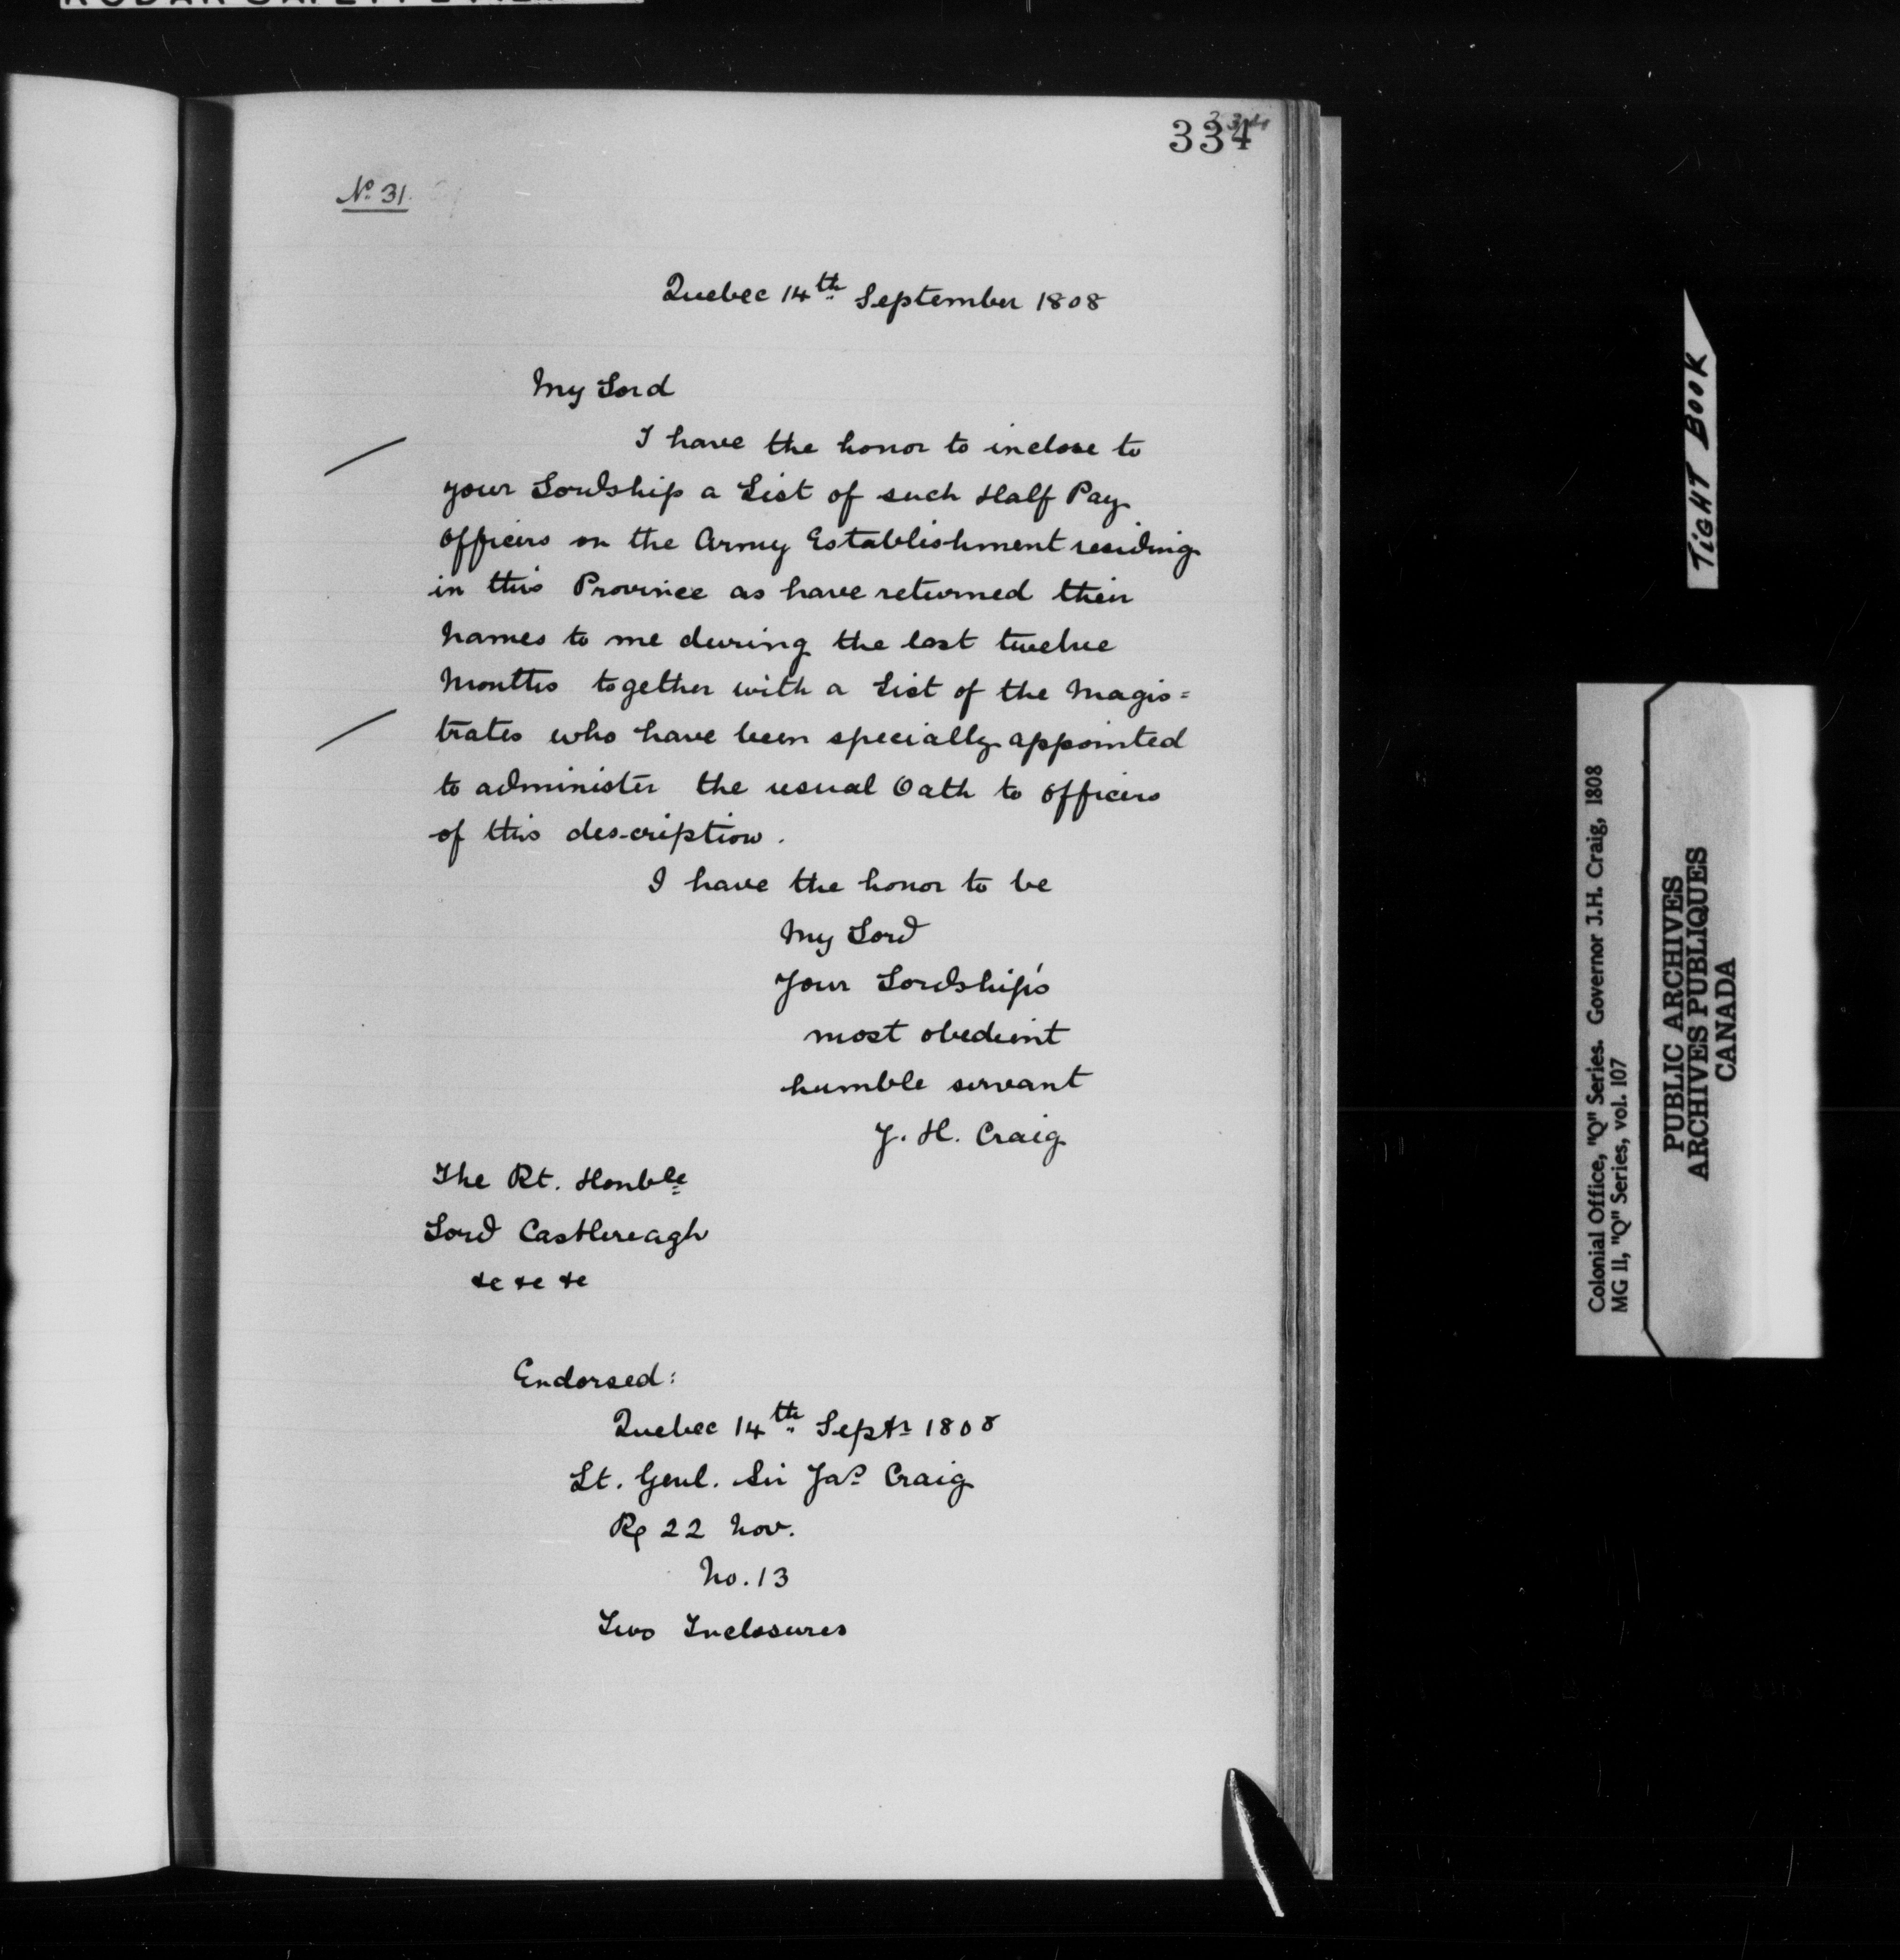 334
No. 31.
Quebec 14th September 1808
My Lord
I have the honor to inclose to
your Lordship a List of such Half Pay
Officers on the Army Establishment residing
in this Province as have returned their
names to me during the last twelve
Months together with a List of the Magis=
trates who have been specially appointed
to administer the usual Oath to Officers
of this description.
I have the honor to be
My Lord
Your Lordship's
most obedient
humble servant
J. H. Craig
The Rt. Honble
Lord Castlereagh
&c &c &c
Endorsed:
Quebec 14th Septr 1808
Lt. Genl. Sir Jas Craig
R 22 Nov.
No. 13
Two Inclosures
TIGHT BOOK
Colonial Office, "Q" Series. Governor J.H. Craig, 1808
MG 11, "Q" Series, vol. 107
PUBLIC ARCHIVES
ARCHIVES PUBLIQUES
CANADA